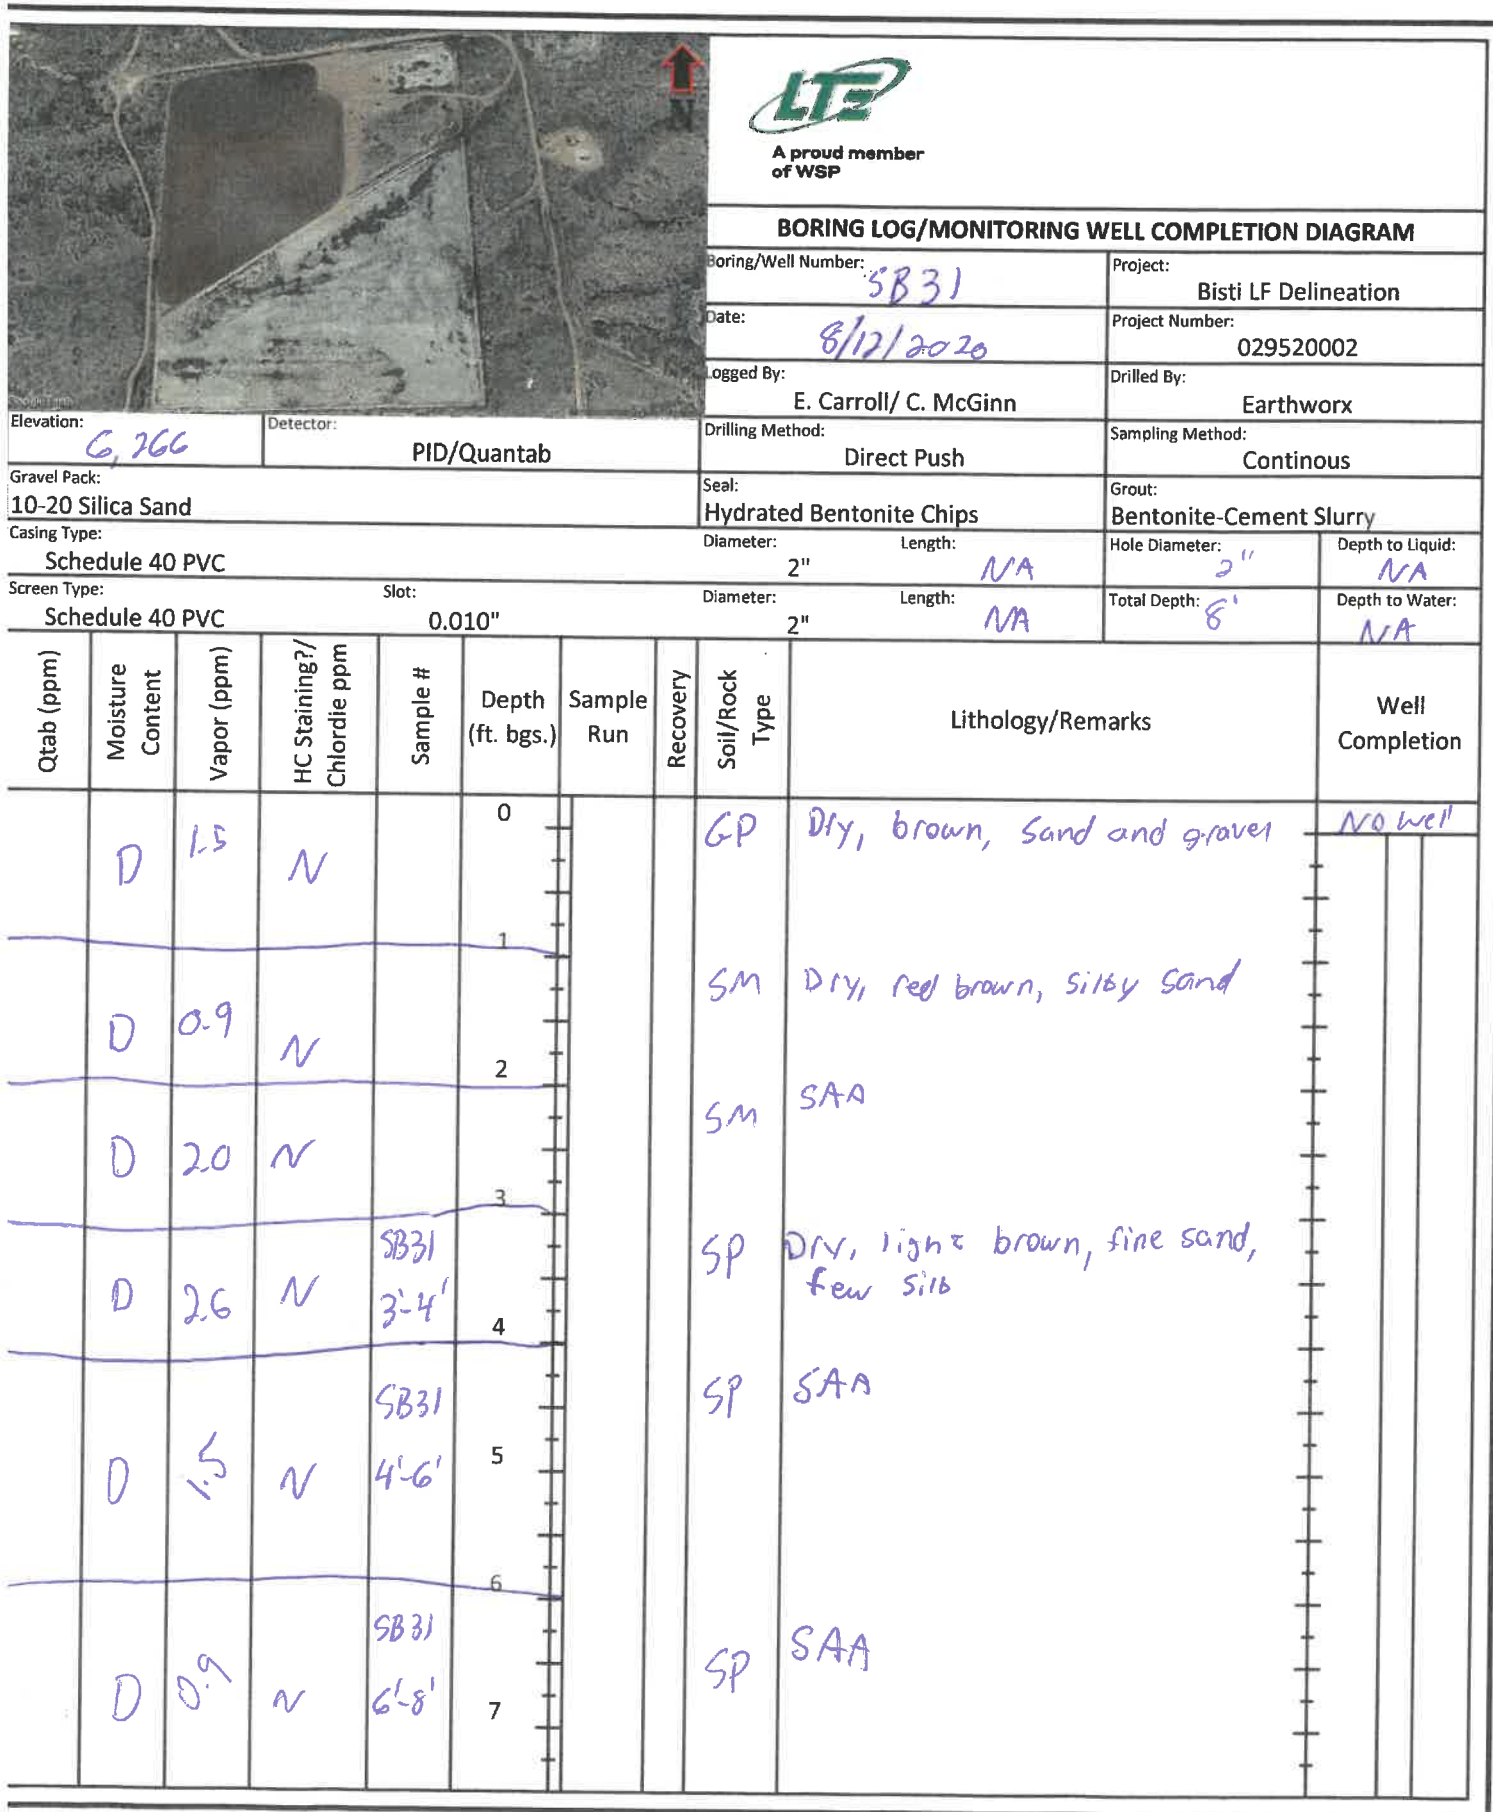 N
LTE
A proud member
of WSP
BORING LOG/MONITORING WELL COMPLETION DIAGRAM
Boring/Well Number: SB31
Project: Bisti LF Delineation
Date: 8/12/2020
Project Number: 029520002
Logged By: E. Carroll/ C. McGinn
Drilled By: Earthworx
Elevation: 6,266
Detector: PID/Quantab
Drilling Method: Direct Push
Sampling Method: Continous
Gravel Pack: 10-20 Silica Sand
Seal: Hydrated Bentonite Chips
Grout: Bentonite-Cement Slurry
Casing Type: Schedule 40 PVC
Diameter: 2"
Length: NA
Hole Diameter: 2"
Depth to Liquid: NA
Screen Type: Schedule 40 PVC
Slot: 0.010"
Diameter: 2"
Length: NA
Total Depth: 8'
Depth to Water: NA
Qtab (ppm)
Moisture Content
Vapor (ppm)
HC Staining?/ Chlordie ppm
Sample #
Depth (ft. bgs.)
Sample Run
Recovery
Soil/Rock Type
Lithology/Remarks
Well Completion
0
D 1.5 N GP Dry, brown, Sand and gravel
No well
1
D 0.9 N SM Dry, red brown, silty sand
2
D 2.0 N SM SAA
3
D 2.6 N SB31 3'-4' SP Dry, light brown, fine sand,
few silt
4
D 1.5 N SB31 4'-6' SP SAA
5
6
D 0.9 N SB31 6'-8' SP SAA
7